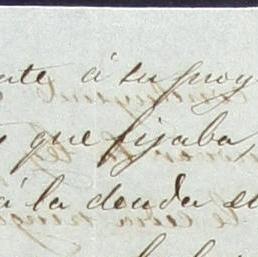 nte á su proy
que fijaba,
á la deuda e